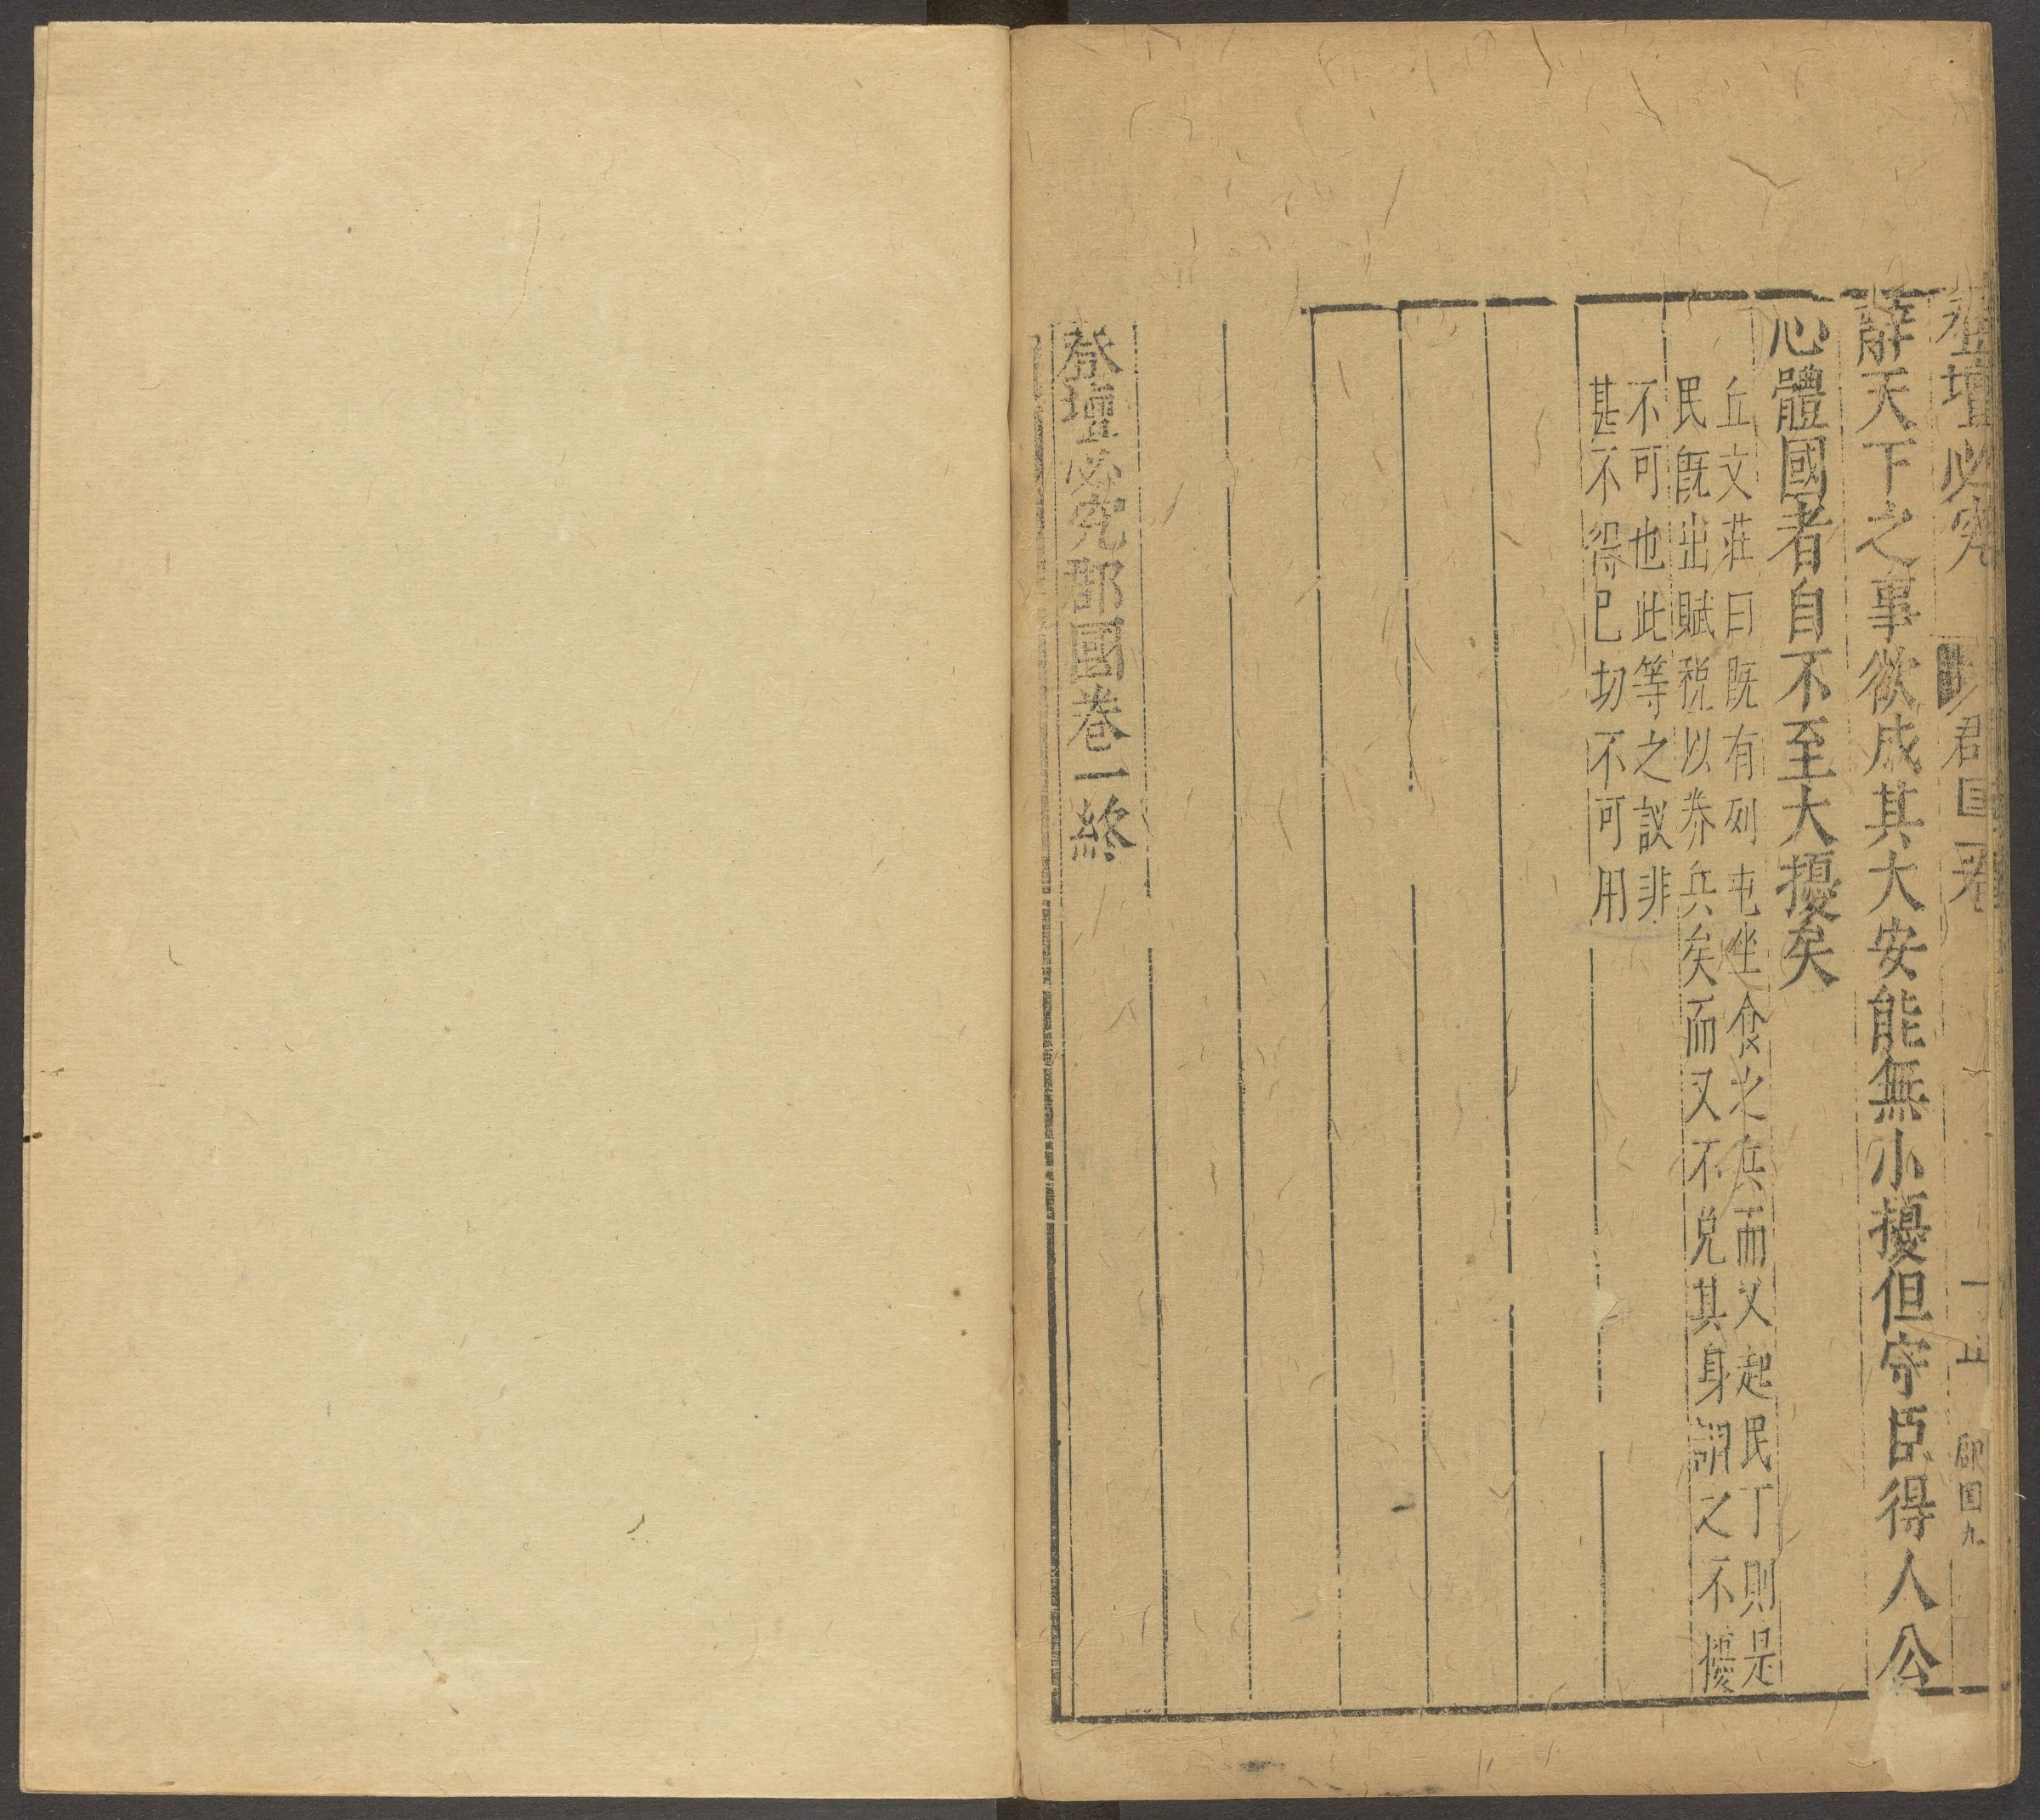 登壇必究 郡國卷 一 五 郡国九
辭天下之事欲成其大安能無小擾但守臣得人公
心體國者自不至大擾矣
丘文莊曰既有列屯坐食之兵而又起民丁則是
民既出賦税以养兵矣而又不免其身謂之不擾
不可也此等之議非
甚不得已切不可用
登壇必究郡國卷一終